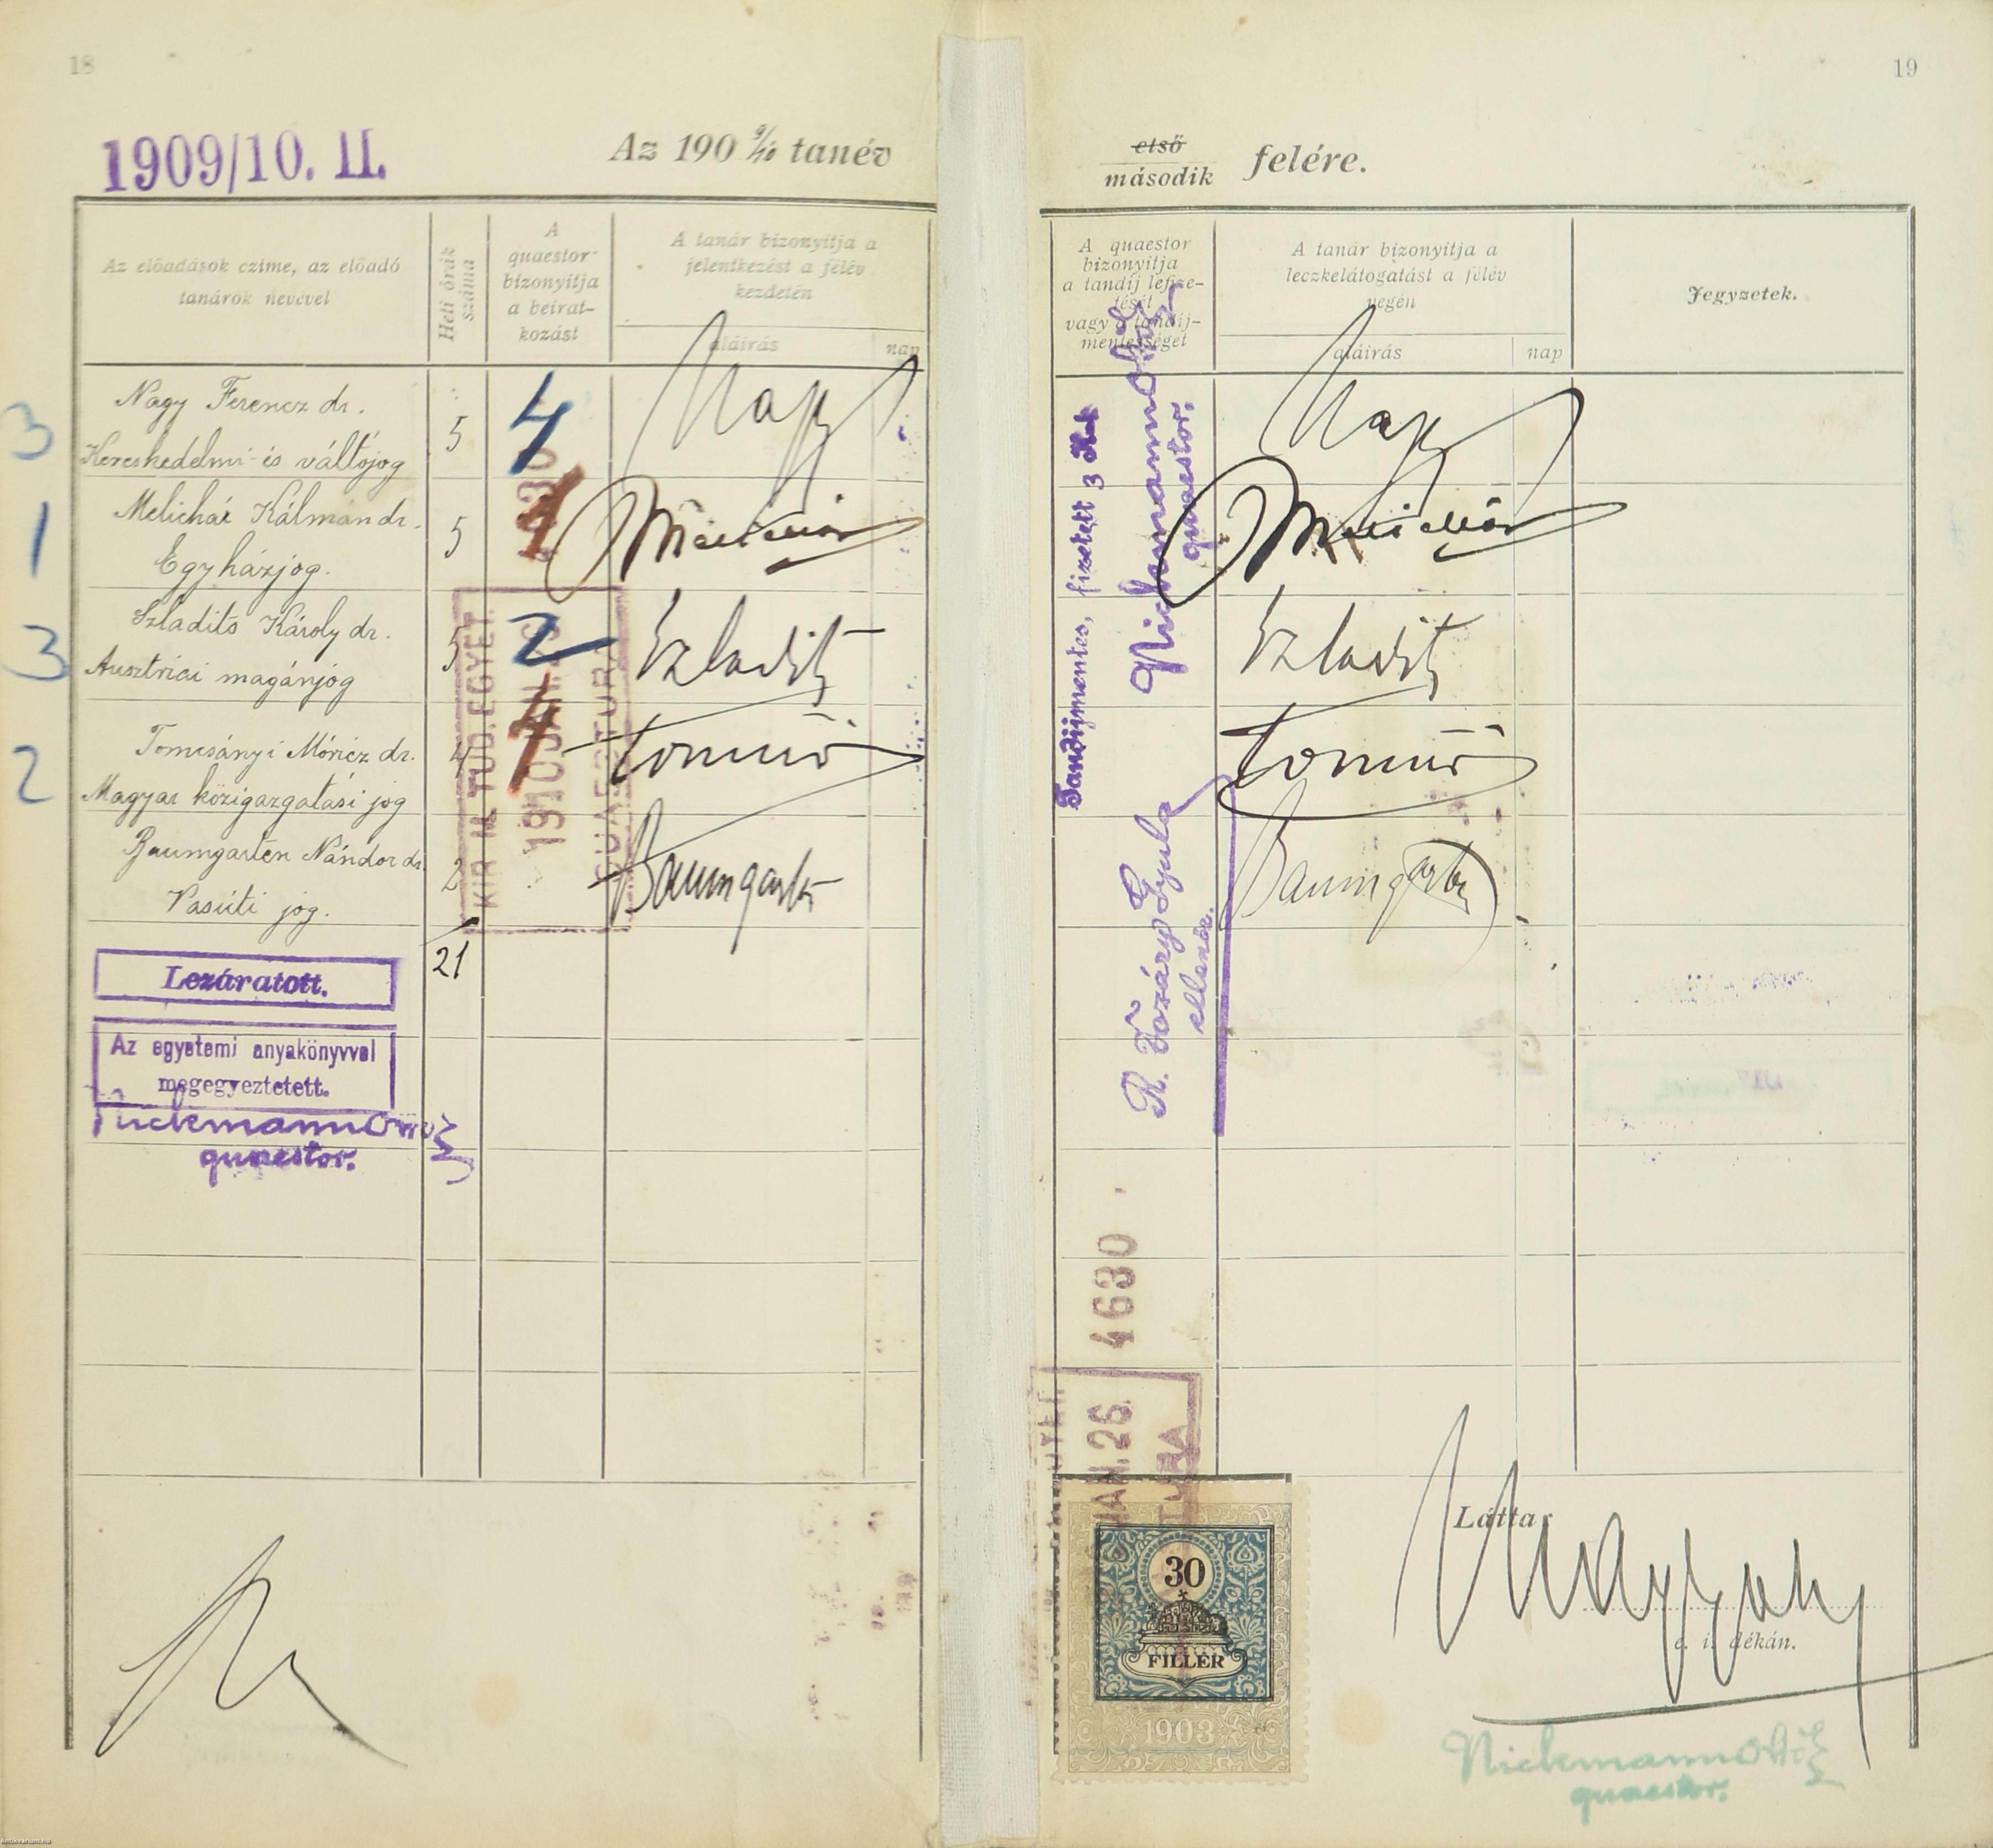 18
1909/10. II.
Az 190 9/10 tanév
Az előadások czime, az előadó
tanárok nevével
Heti órák
száma
A
quaestor
bizonyitja
a beirat-
kozást
A tanár bizonyitja a
jelentkezést a félév
kezdetén
aláirás
nap
3
Nagy Ferencz dr.
Kereskedelmi- és váltójog
5
4
Nagy
1
Melichár Kálmán dr.
Egyházjog.
5
3
Szladits Károly dr.
Ausztriai magánjog
5
2
Szladits
2
Tomcsányi Móricz dr.
Magyar közigazgatási jog
4
Baumgarten Nándor dr.
Vasúti jog.
2
Baumgarten
21
KIR. M. TUD. EGYET.
1910 JAN. 26
QUAESTURA
Lezáratott.
Az egyetemi anyakönyvvel
megegyeztetett.
Nickmann Ottó
quaestor.
19
első
második
felére.
A quaestor
bizonyitja
a tandíj lefize-
tését
vagy a tandíj-
mentességet
A tanár bizonyitja a
leczkelátogatást a félév
végén
aláirás
nap
Jegyzetek.
Tandijmentes, fizetett 3 Kor
Nickmann Ottó
quaestor.
Nagy
Szladits
Baumgarten
R. Fozáry Gyula
ellenőr.
4630
JAN. 26.
30
FILLÉR
1903
Látta:
e. i. dékán.
Nickmann Ottó
quaestor.
Antikvarium.hu